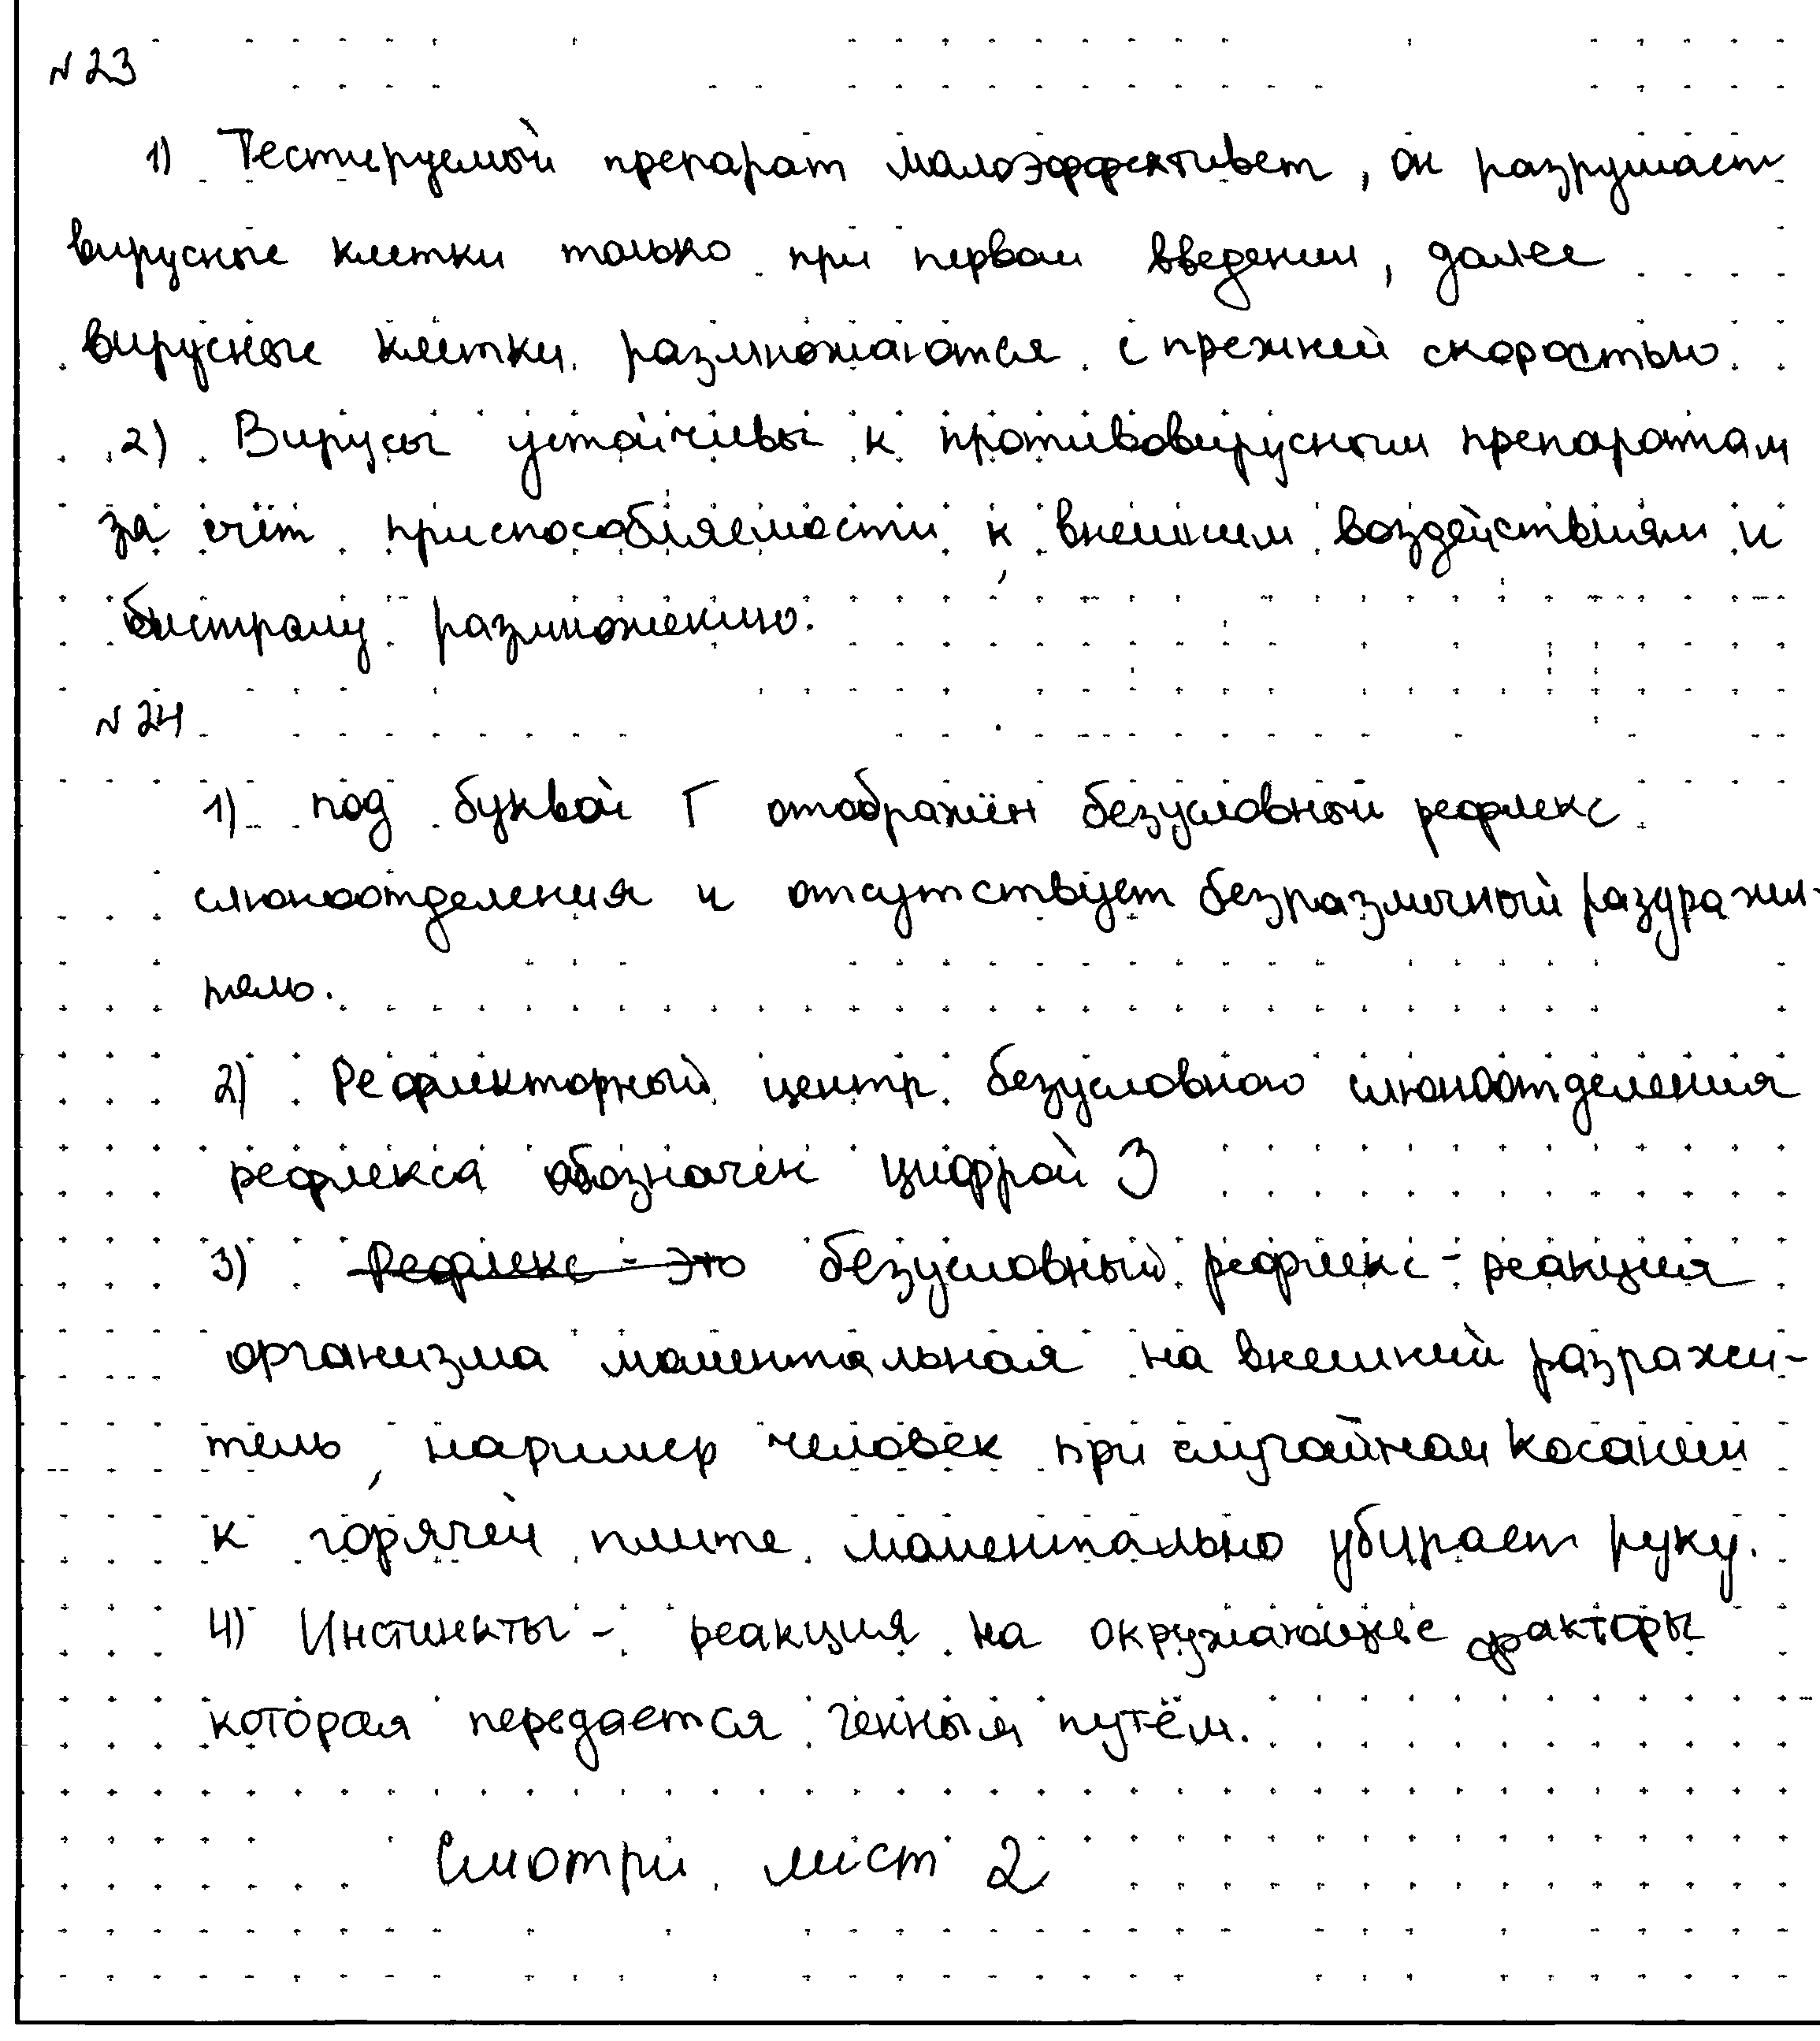 №23
1) Тестируемый препарат малоэффективет, он разрушает
вирусные клетки только при первом введении, далее
вирусные клетки размножаются с прежней скоростью.
2) Вирусы устойчивы к противовирусным препаратам
за счёт приспособляемости к внешним воздействиям и
быстрому размножению.
№24
1) под буквой Г отображён безусловный рефлекс
слюноотделения и отсутствует безразличный раздражи-
тель.
2) Рефлекторный центр безусловного слюноотделения
рефлекса обозначен цифрой 3
3) Рефлекс - это безусловный рефлекс - реакция
организма моментальная на внешний разражи-
тель, например человек при случайном косании
к горячей плите моментально убирает руку.
4) Инстинкты - реакция на окружающие факторы
которая передается генным путём.
Смотри лист 2